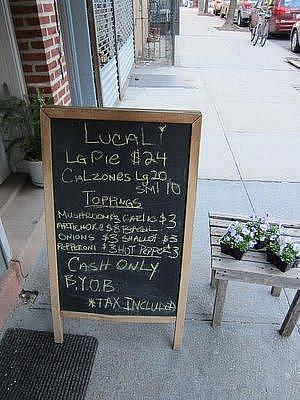 LUCALI
LG PIE $24
CALZONES LG 20
SML 10
TOPPINGS
MUSHROOM $3 GARLIC $3
ARTICHOKE $8 BASIL
ONIONS $3 SHALLOT $3
PEPPERONI $3 HOT PEPPER $3
CASH ONLY
B.Y.O.B
*TAX INCLUDED